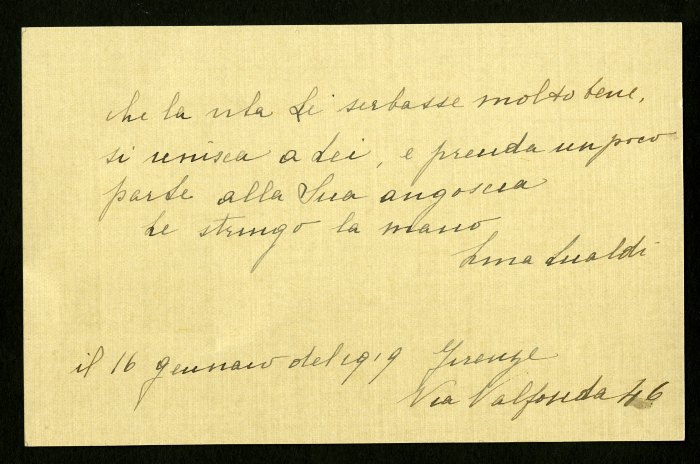 che la vita Le serbasse molto bene,
si unisca a Lei, e prenda un poco
parte alla Sua angoscia
Le stringo la mano
Lina Lualdi
il 16 gennaio del 1919 Firenze
Via Valfonda 46